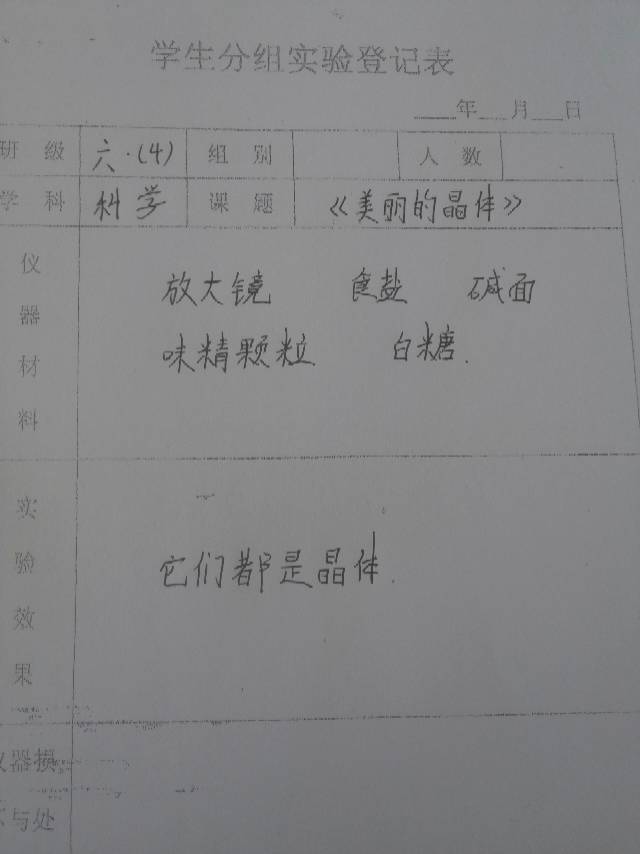 学生分组实验登记表
____年___月___日
班级 六.(4) 组别 人数
学科 科学 课题 《美丽的晶体》
仪器材料
放大镜 食盐 碱面
味精颗粒 白糖.
实验效果
它们都是晶体.
仪器损
与处